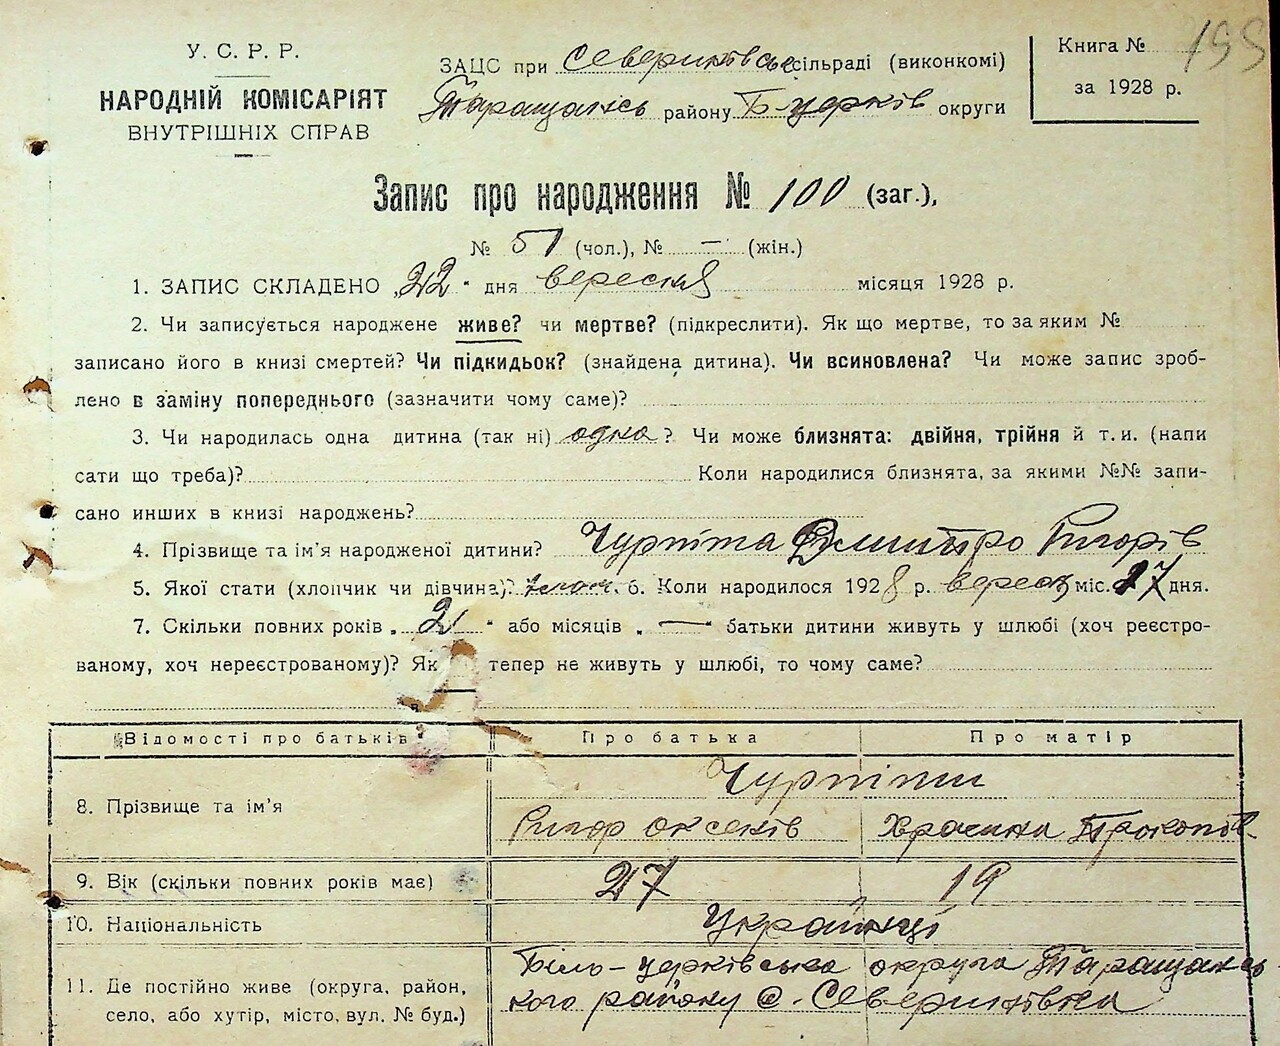 У. С. Р. Р.
НАРОДНІЙ КОМІСАРІЯТ
ВНУТРІШНІХ СПРАВ
ЗАЦС при Севериківськ сільраді (виконкомі)
Таращансь району Б-церків округи
Книга №
за 1928 р.
Запис про народження № 100 (заг.),
№ 51 (чол.), № — (жін.)
1. ЗАПИС СКЛАДЕНО „22" дня вересня місяця 1928 р.
2. Чи записується народжене живе? чи мертве? (підкреслити). Як що мертве, то за яким №
записано його в книзі смертей? Чи підкидьок? (знайдена дитина). Чи всиновлена? Чи може запис зроб-
лено в заміну попереднього (зазначити чому саме)?
3. Чи народилась одна дитина (так ні) одна? Чи може близнята: двійня, трійня й т.и. (напи
сати що треба)? Коли народилися близнята, за якими №№ запи-
сано инших в книзі народжень?
4. Прізвище та ім'я народженої дитини? Чурпіта Дмитро Ригорів
5. Якої стати (хлопчик чи дівчина)? хлоп. 6. Коли народилося 1928 р. верес міс. 17 дня.
7. Скільки повних років „2" або місяців „—" батьки дитини живуть у шлюбі (хоч реєстро-
ваному, хоч нереєстрованому)? Як тепер не живуть у шлюбі, то чому саме?
Відомості про батьків
Про батька
Про матір
8. Прізвище та ім'я
Чурпіти
Ригор Оксеків
Прокопів-
9. Вік (скільки повних років має)
27
19
10. Національність
Українці
11. Де постійно живе (округа, район,
село, або хутір, місто, вул. № буд.)
Біло-церківська округа Таращансь-
кого району с. Севериківка